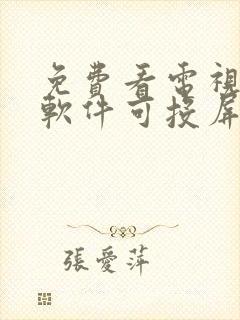 免費看電視
軟件可投屏
張愛萍